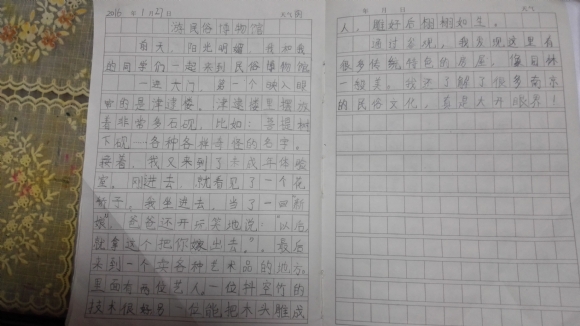 2016年1月27日 天气
游民俗博物馆
今天，阳光明媚，我和我
的同学们一起来到民俗博物馆
一进大门，第一个映入眼
帘的是津逮楼。津逮楼里摆放
着非常多石砚，比如：菩提树
下砚……各种各样奇怪的名字。
接着，我又来到了 年体验
室。刚进去，就看见了一个花
轿子，我坐进去，当了一回新
娘"，爸爸还开玩笑地说："以后
就拿这个把你嫁出去。"。最后
来到一个卖各种艺术品的地方。
里面有两位艺人，一位抖空竹的
技术很好另一位能把木头雕成
年 月 日 天气
人，雕好后栩栩如生。
通过 ，我发现这里有
很多传统特色的房屋，像园林
一较美。我还了解了很多南京
的民俗文化，真是大开眼界！